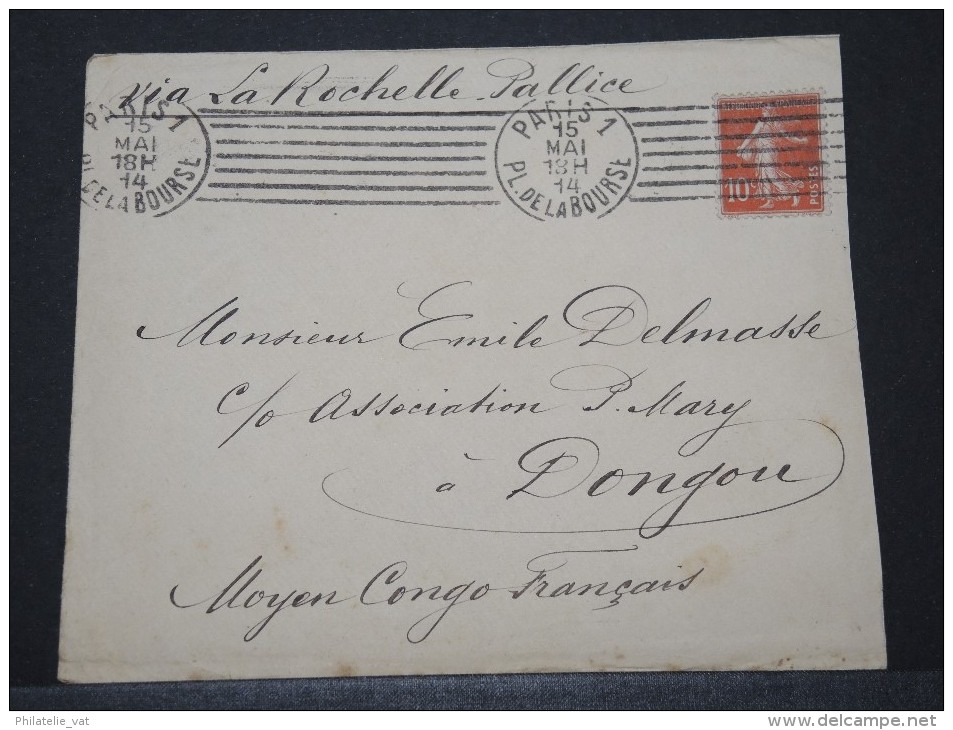 via La Rochelle-Pallice
PARIS 1
15
MAI
18H
14
PL. DE LA BOURSE
PARIS 1
15
MAI
18H
14
PL. DE LA BOURSE
10c
POSTES
Monsieur Emile Delmasse
c/o Association P. Mary
à Dongou
Moyen Congo Français
Philatelie_vat
delcampe.net